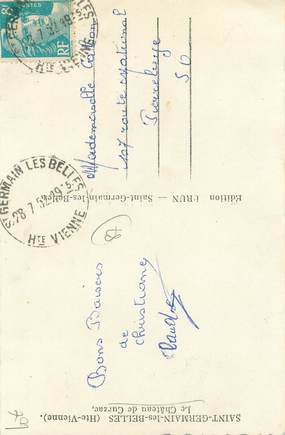 SAINT-GERMAIN-LES-BELLES (Hte-Vienne).
Le Château de Curzac,
Bons Baisers
de
Christiane
87
Edition BRUN — Saint-Germain-les-Belles
Mademoiselle
127 route Nationale
S O
RF
ST GERMAIN LES BELLES
28-7 52
HTE VIENNE